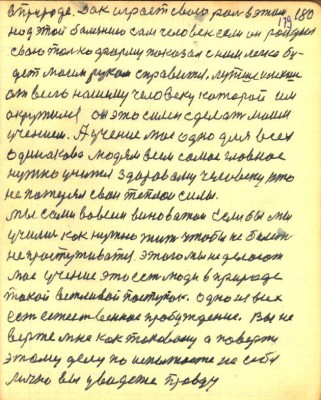 в природе. Бак играет свою рол в этим, 180
179
над этой болезнию сам человек сем он родился
свою только форму показал с ним легко бу-
дет моим рукам справится. лутше иметь
от всего нашему человеку которой им
окружился он это сили сделает моим
учением. А учение мое одно для всех
одинаково людям всем самое главное
нужно учится здоровому человеку что
не потерял свои теплои силы.
мы сами во всем виноватои если бы мы
училис как нужно жит чтобы не болет
не простуживатся. этого мы не делаем
мое учение это ест люди в природе
такой вежливой поступок. одно из всех
ест естественное пробуждение. Вы не
верте мне как таковому а поверте
этому делу по испытаете на себя
лично вы увидете правду